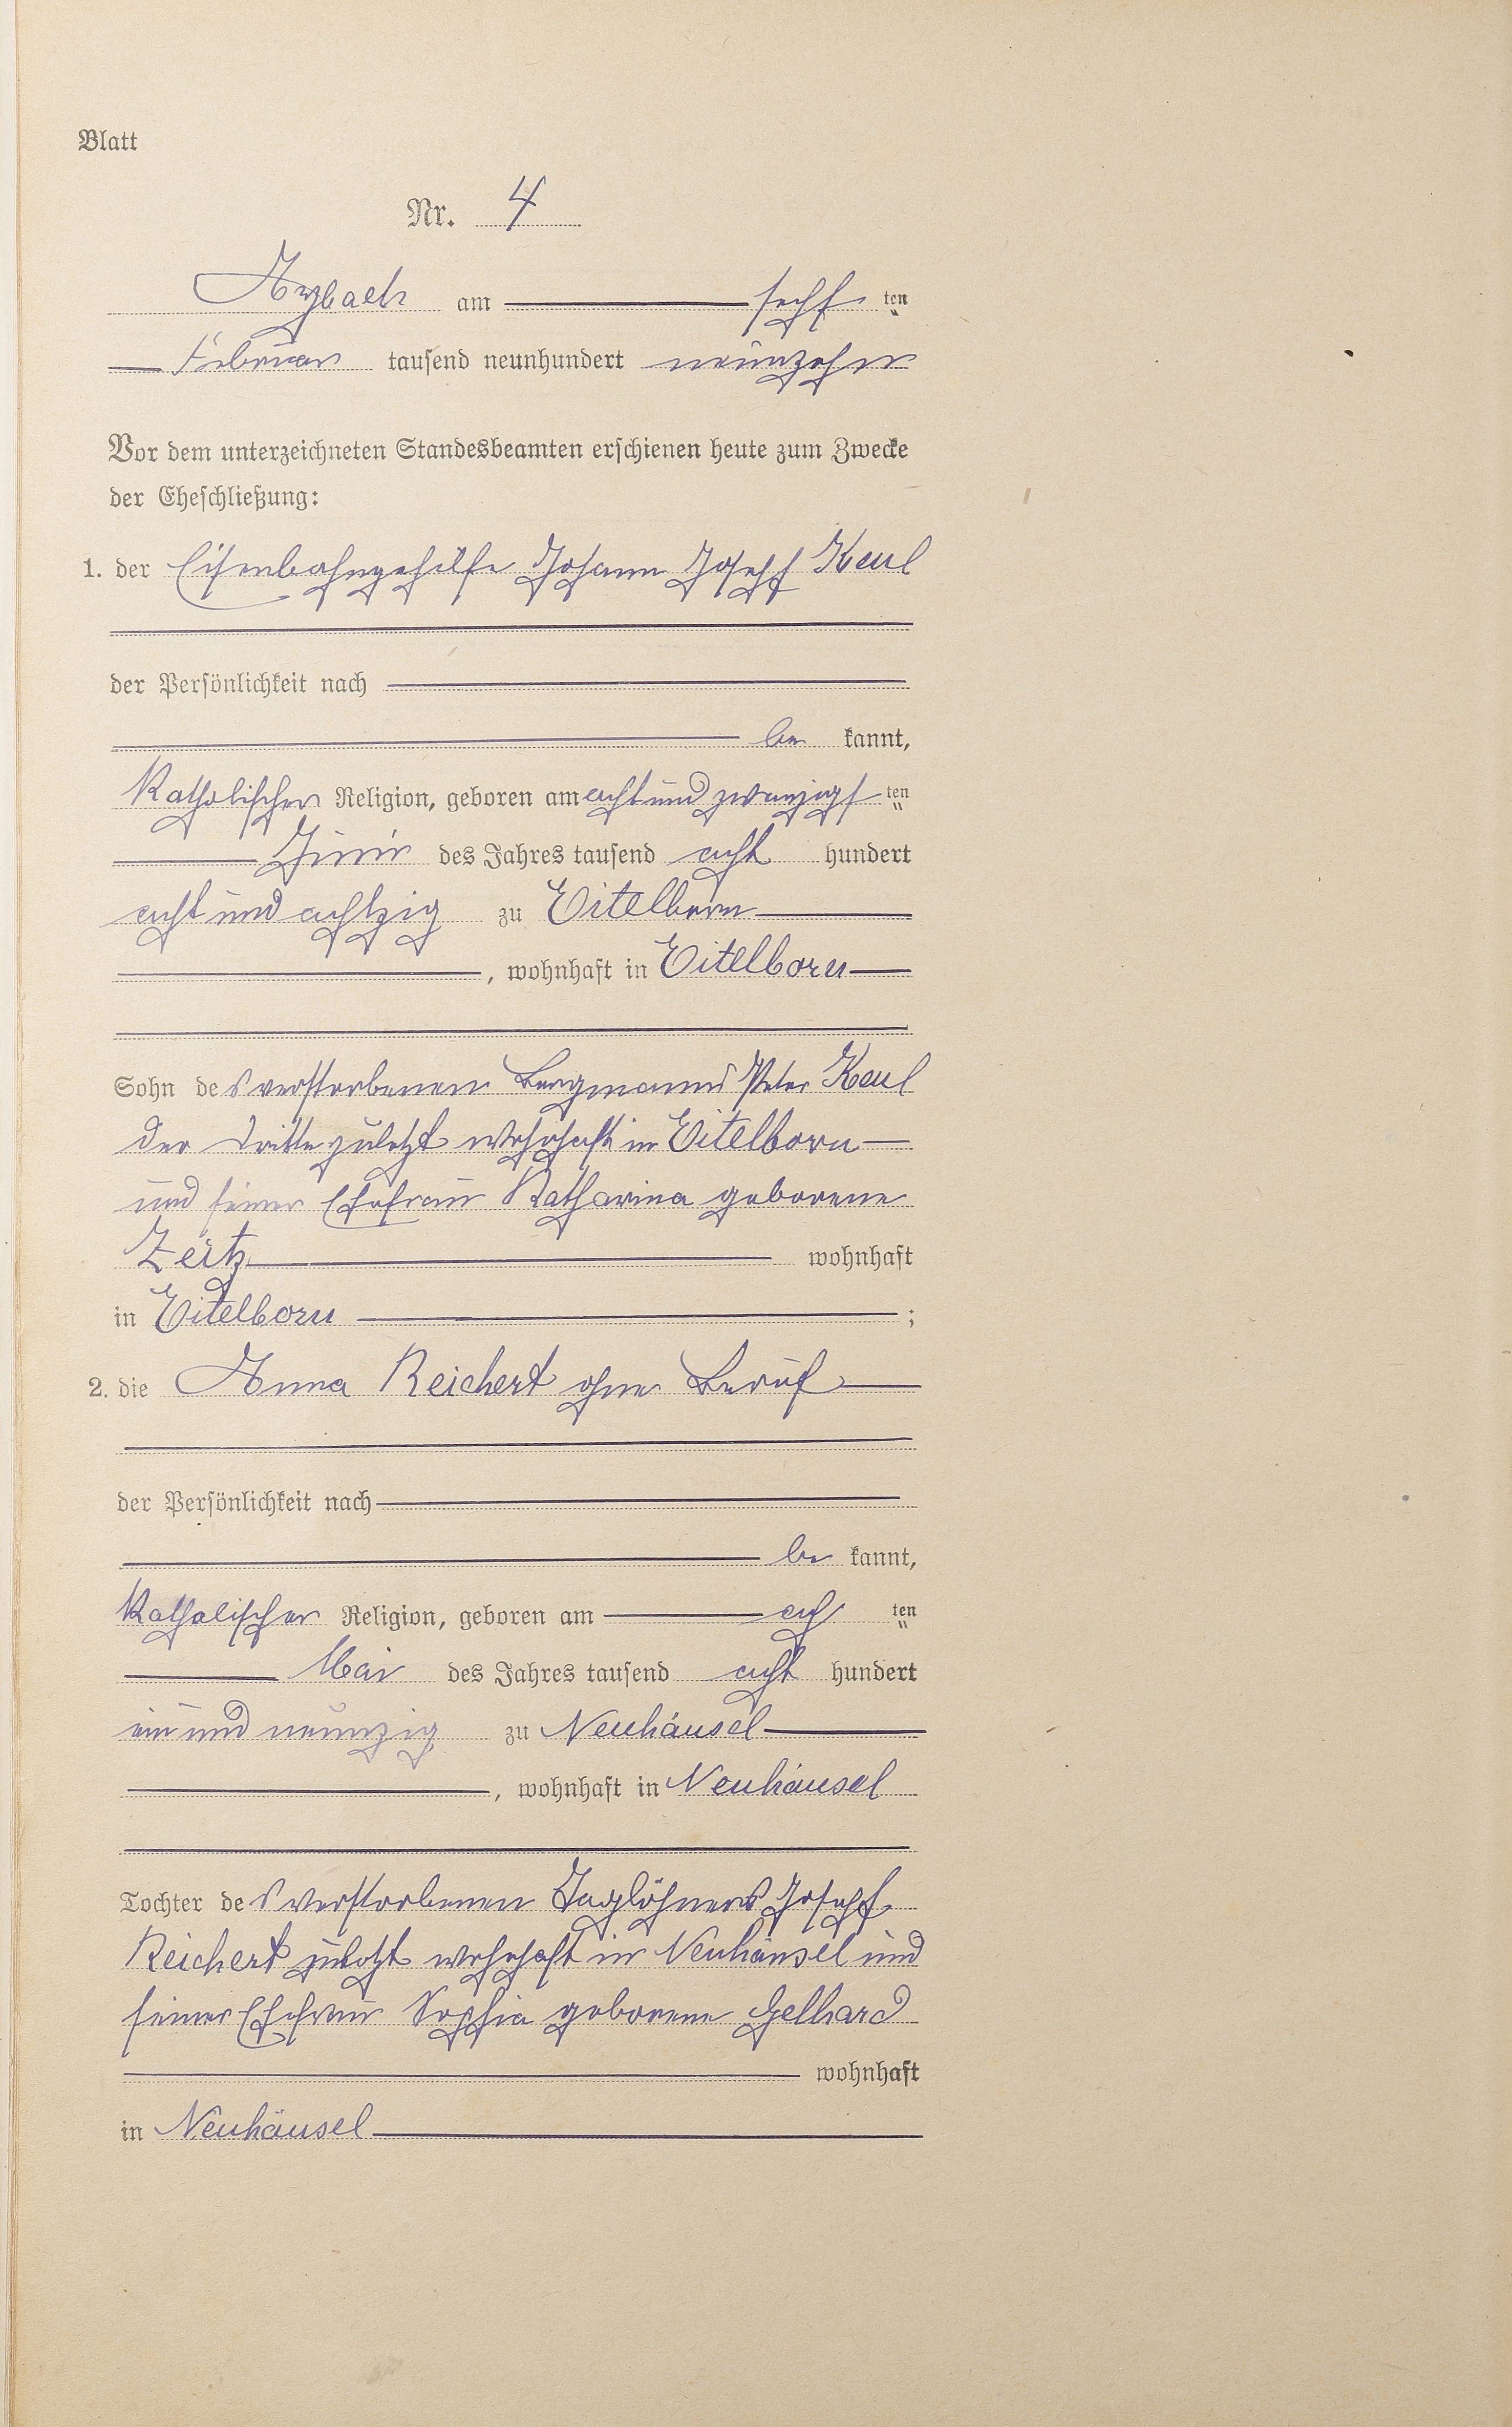 Blatt
Nr. 4
Arzbach am sechs ten
Februar tausend neunhundert neunzehn
Vor dem unterzeichneten Standesbeamten erschienen heute zum Zwecke
der Eheschließung:
1. der Eisenbahngehilfe Johann Joseph Keul
der Persönlichkeit nach
be kannt,
Katholischer Religion, geboren am acht und zwanzigs ten
Juni des Jahres tausend acht hundert
acht und achtzig zu Eitelborn
, wohnhaft in Eitelborn
Sohn des verstorbenen Bergmanns Peter Keul
der Dritte zuletzt wohnhaft in Eitelborn
und seiner Ehefrau Katharina geborene
Zeitz wohnhaft
in Eitelborn ;
2. die Anna Reichert ohne Beruf
der Persönlichkeit nach
be kannt,
Katholischer Religion, geboren am ach ten
Mai des Jahres tausend acht hundert
ein und neunzig zu Neuhäusel
, wohnhaft in Neuhäusel
Tochter des verstorbenen Taglöhners Joseph
Reichert zuletzt wohnhaft in Neuhäusel und
seiner Ehefrau Sophia geborene Gelhard
wohnhaft
in Neuhäusel